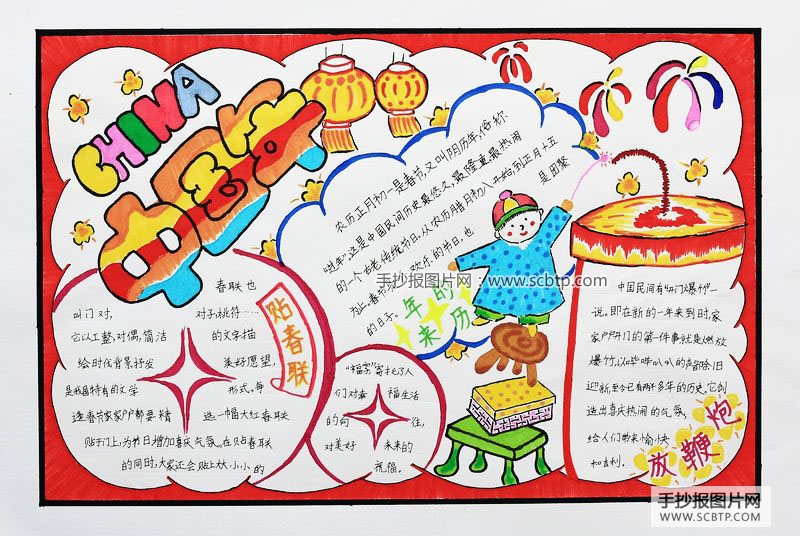 CHINA
中国年
农历正月初一是春节,又叫阴历年,俗称
“过年”。这是中国民间历史最悠久,最隆重,最热闹
的一个古老传统节日。从农历腊月初八开始,到正月十五
为止。春节是个欢乐的节日,也
是团聚
的日子。
年的
来历
春联也
叫门对,
对子,桃符……
它以工整,对偶,简洁
的文字描
绘时代背景,抒发
美好愿望,
是我国特有的文学
形式。每
逢春节家家户户都要精
选一幅大红春联
贴于门上,为节日增加喜庆气氛。在贴春联
的同时,大家还会贴上大小小的
贴春联
“福字”寄托了人
们对幸
福生活
的向
往,
对美好
未来的
祝福。
中国民间有“开门爆竹”一
说。即在新的一年来到时,家
家户户开门的第一件事就是燃放
爆竹,以哔哔叭叭的声音除旧
迎新,至今已有两千多年的历史,它创
造出喜庆热闹的气氛。
给人们带来愉快
和吉利。
放鞭炮
手抄报图片网:www.scbtp.com
手抄报图片网
WWW.SCBTP.COM